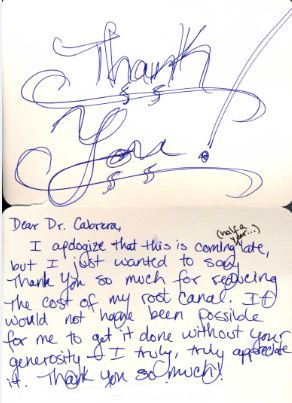 Thank
You!
Dear Dr. Cabrera,
I apologize that this is coming late, (half a year...)
but I just wanted to say
Thank You so much for reducing
the cost of my root canal. It
would not have been possible
for me to get it done without your
generosity - I truly, truly appreciate
it. Thank you so much!